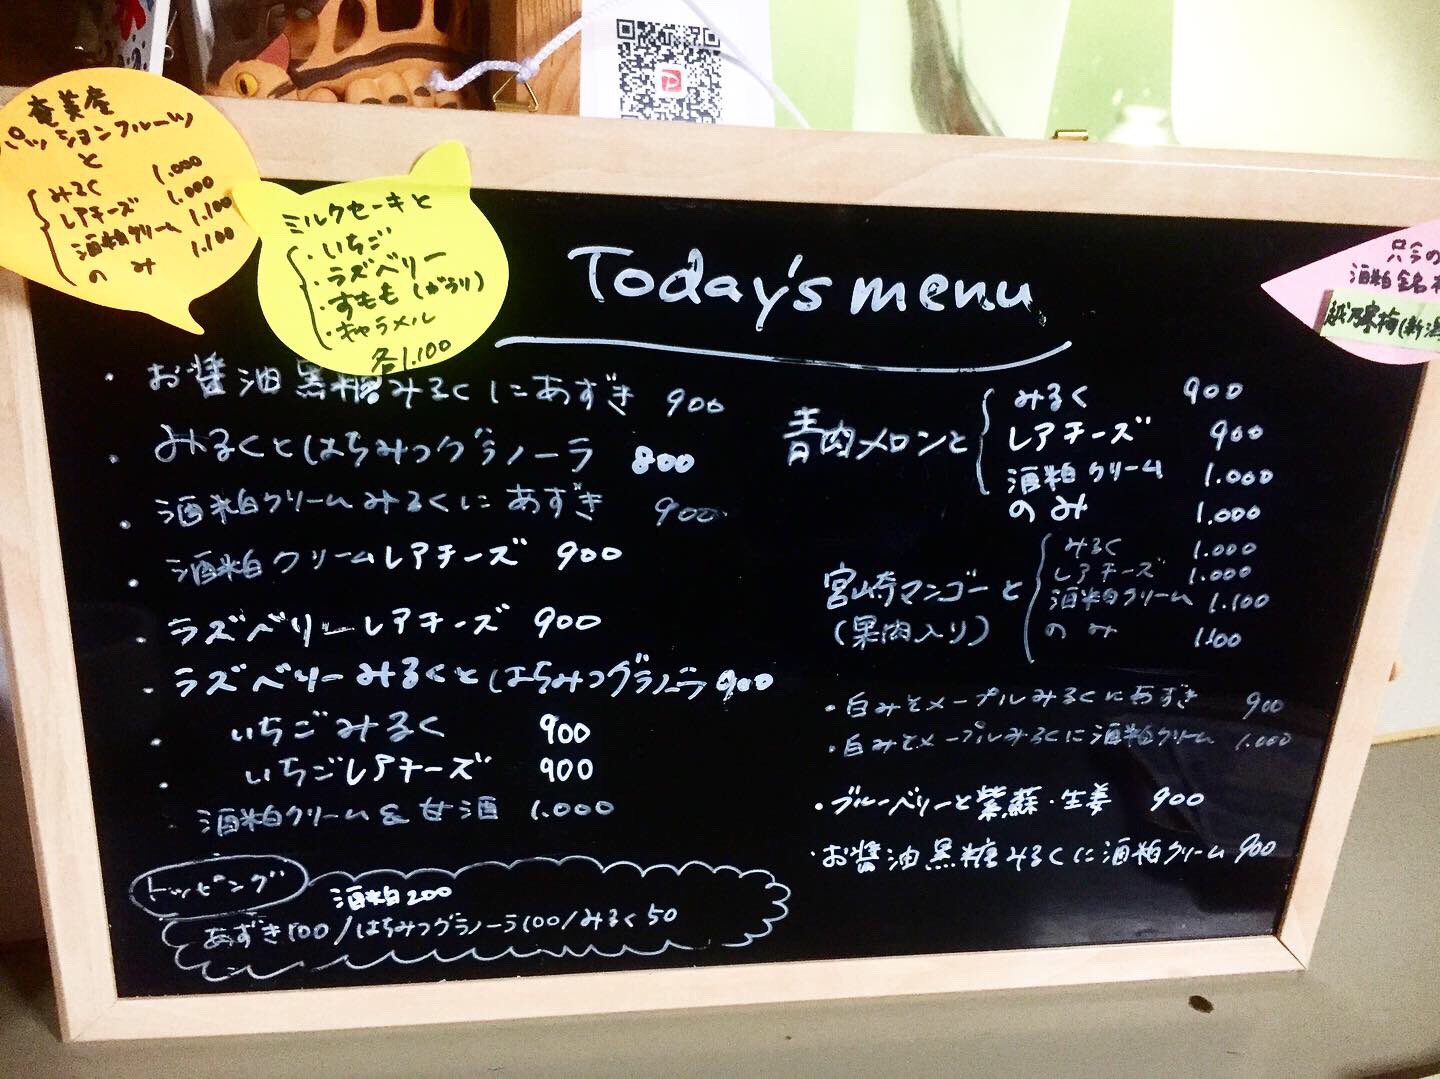 奄美産
パッションフルーツ
と
みるく 1.000
レアチーズ 1.000
酒粕クリーム 1.100
のみ 1.100
ミルクセーキと
・いちご
・ラズベリー
・すもも(がらり)
・キャラメル
各1.100
只今の
酒粕銘柄
越乃寒梅(新潟
Today's menu
・お醤油黒糖みるくにあずき 900
・みるくとはちみつグラノーラ 800
・酒粕クリームみるくにあずき 900
・酒粕クリームレアチーズ 900
・ラズベリーレアチーズ 900
・ラズベリーみるくとはちみつグラノーラ 900
・いちごみるく 900
・いちごレアチーズ 900
・酒粕クリーム&甘酒 1.000
トッピング
酒粕200
あずき100/はちみつグラノーラ100/みるく50
青肉メロンと
みるく 900
レアチーズ 900
酒粕クリーム 1.000
のみ 1.000
宮崎マンゴーと
(果肉入り)
みるく 1.000
レアチーズ 1.000
酒粕クリーム 1.100
のみ 1.100
・白みそメープルみるくにあずき 900
・白みそメープルみるくに酒粕クリーム 1.000
・ブルーベリーと紫蘇・生姜 900
・お醤油黒糖みるくに酒粕クリーム 900